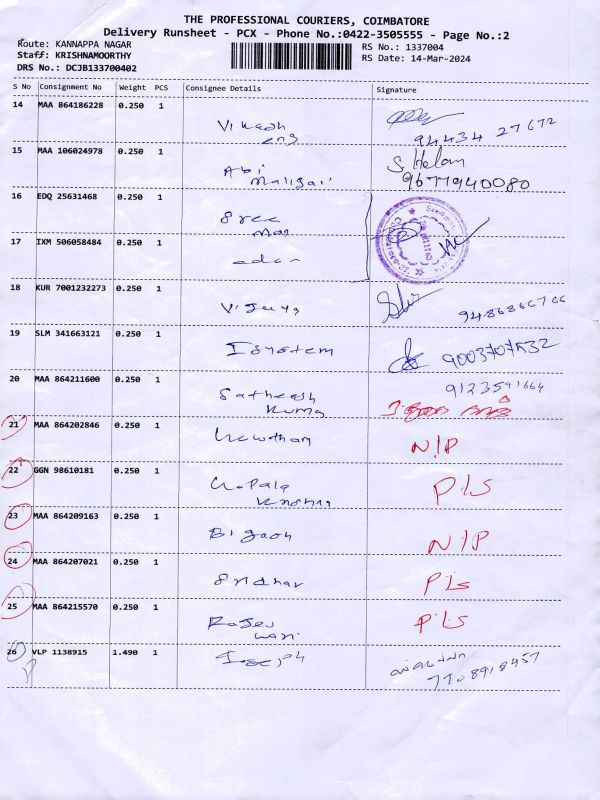 THE PROFESSIONAL COURIERS, COIMBATORE
Delivery Runsheet - PCX - Phone No.:0422-3505555 - Page No.:2
Route: KANNAPPA NAGAR
RS No.: 1337004
Staff: KRISHNAMOORTHY
RS Date: 14-Mar-2024
DRS No.: DCJB133700402
S No Consignment No Weight PCS Consignee Details Signature
14 MAA 864186228 0.250 1
Vikash
94434 27672
15 MAA 106024978 0.250 1 Abi S. Helan
9677940080
16 EDQ 25631468 0.250 1
Sree
17 IXM 506058484 0.250 1
18 KUR 7001232273 0.250 1
Vijaya
19 SLM 341663121 0.250 1
System 9003707532
20 MAA 864211600 0.250 1 9123591664
Satheesh
Kuma
21 MAA 864202846 0.250 1
Gowtham N/P
22 GGN 98610181 0.250 1
Gopala P/S
Krishna
23 MAA 864209163 0.250 1
N/P
24 MAA 864207021 0.250 1
Sridhar P/S
25 MAA 864215570 0.250 1
P/S
26 VLP 1138915 1.490 1 Joseph
7708918457